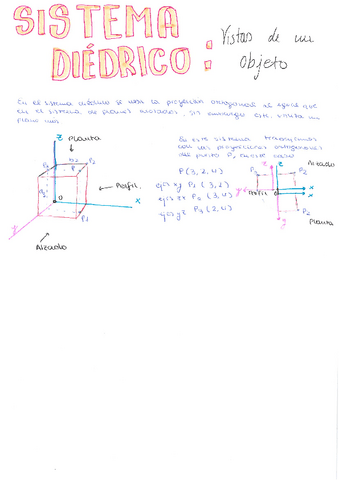 SISTEMA
DIÉDRICO : Vistas de un
objeto
En el sistema diédrico se usa la proyección ortogonal al igual que
en el sistema de planos acotados, sin embargo este, utiliza un
plano más
En este sistema trabajamos
con las proyecciones ortogonales
del punto P, en este caso
P(3, 2, 4)
ejes xy P₁ (3, 2)
ejes xz P₂ (3, 4)
ejes yz P₃ (2, 4)
z Planta
P₃ P₂
P
P₁
O
← Perfil
x
y
Alzado
Alzado
z
P₃ P₂
y x
Perfil O x
P₁
y Planta